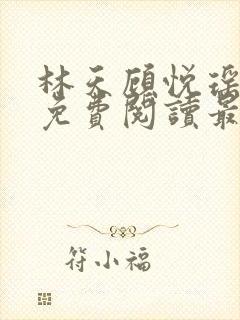 林天顾悦瑶
免費閱讀最
符小福